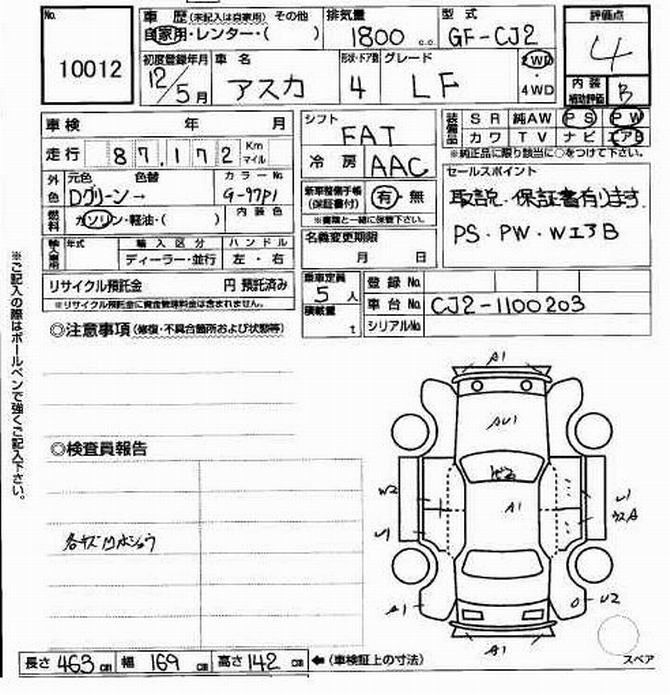 No. 10012
車歴 (未記入は自家用) その他
自家用・レンター・( )
排気量 1800 c.c.
型式 GF-CJ2
評価点 4
内装補助評価 B
初度登録年月 12/5月
車名 アスカ
形状・ドア数 4
グレード LF
2WD・4WD
車検 年 月
走行 87,172 Km マイル
シフト FAT
冷房 AAC
装備品 SR 純AW PS PW
カワ TV ナビ エアB
※純正品に限り該当に○をつけて下さい。
外色 元色 色替 カラーNo
Dグリーン→ G-97P1
燃料 ガソリン・軽油・( ) 内装色
新車整備手帳(保証書付) 有・無
※書類と一緒に保管下さい。
セールスポイント
取説・保証書有ります。
PS・PW・WエアB
輸入車用 年式 輸入区分 ハンドル
ディーラー・並行 左・右
名義変更期限 月 日
リサイクル預託金 円 預託済み
※リサイクル預託金に資金管理料金は含まれません。
乗車定員 5人
積載量 t
登録No
車台No CJ2-1100203
シリアルNo
◎注意事項 (修復・不具合箇所および状態等)
※ご記入の際はボールペンで強くご記入下さい。
◎検査員報告
各キズ凹ホショウ
A1
AU1
A1
W2
U1
U1
A1
U2
A1
スペア
長さ 463 cm 幅 169 cm 高さ 142 cm ←(車検証上の寸法)